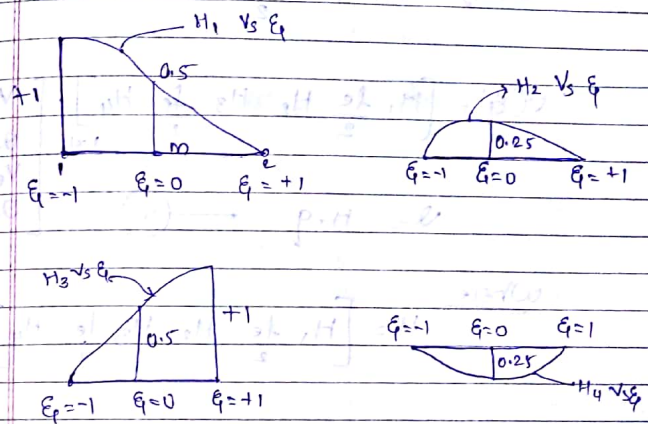 H₁ Vs ξ
+1
0.5
1
m
2
ξ = -1
ξ = 0
ξ = +1
H₂ Vs ξ
0.25
ξ = -1
ξ = 0
ξ = +1
H₃ Vs ξ
+1
0.5
ξ = -1
ξ = 0
ξ = +1
ξ = -1
ξ = 0
ξ = 1
0.25
H₄ Vs ξ